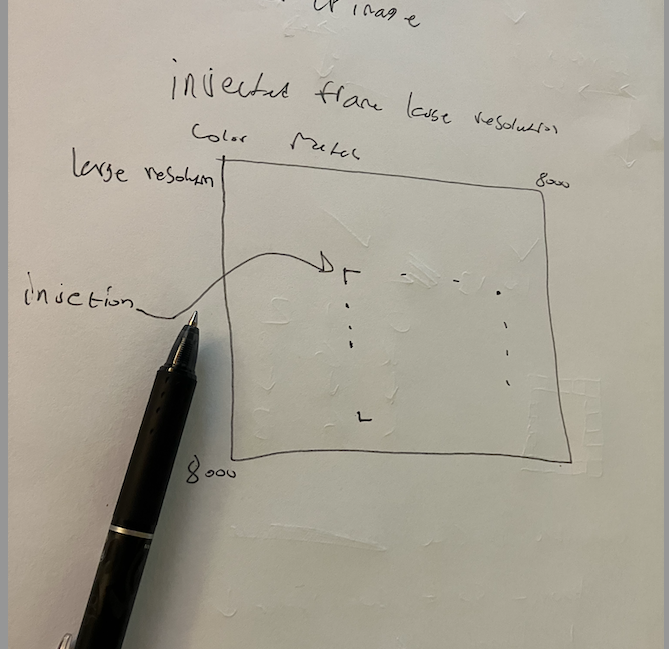 image
injected frame large resolution
Color Match
large resolution
8000
injection
8000